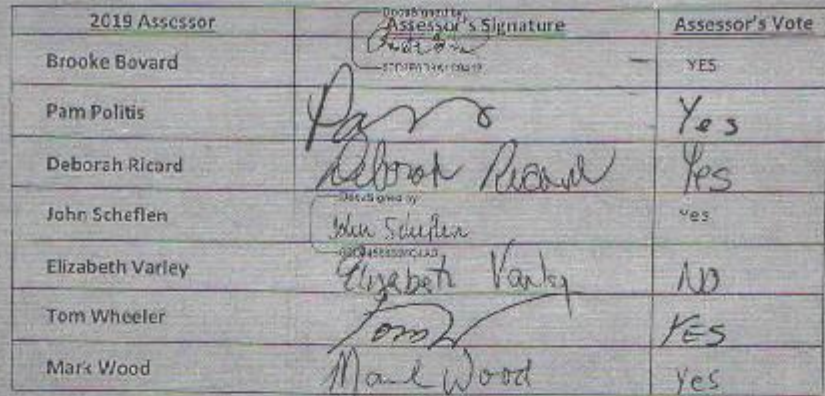 2019 Assessor Assessor's Signature Assessor's Vote
DocuSigned by:
Brooke Bovard YES
Pam Politis Yes
Deborah Ricard Deborah Ricard Yes
DocuSigned by
John Scheflen John Scheflen Yes
Elizabeth Varley Elizabeth Varley NO
Tom Wheeler Tom W YES
Mark Wood Mark Wood Yes